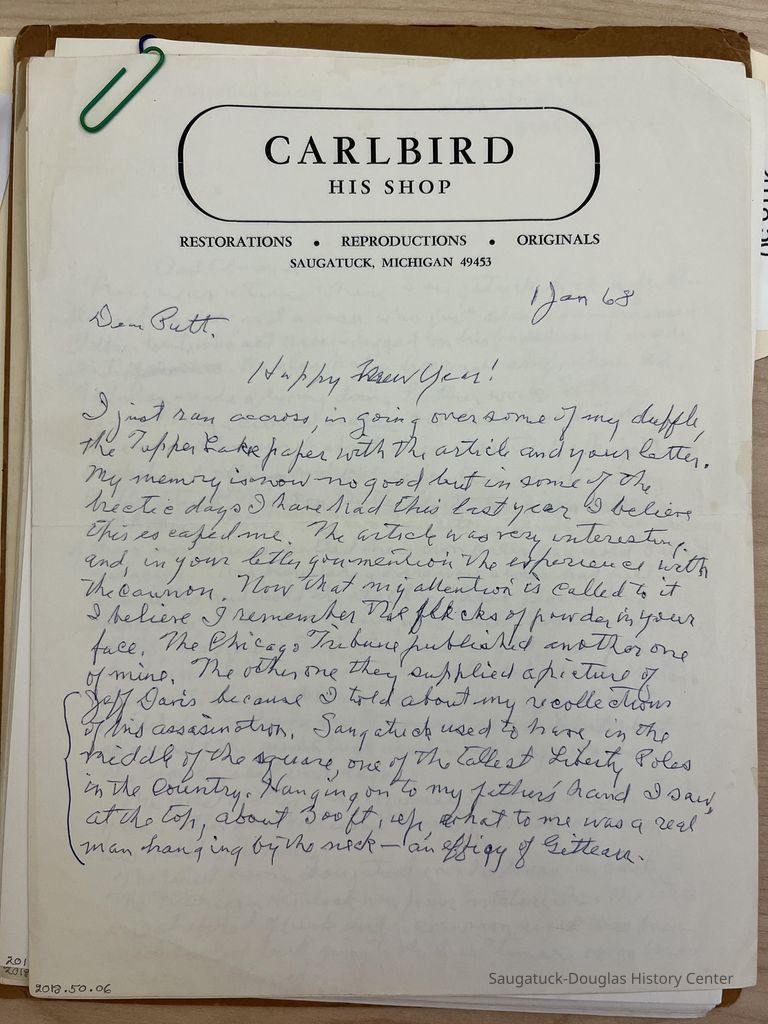 CARLBIRD
HIS SHOP
RESTORATIONS • REPRODUCTIONS • ORIGINALS
SAUGATUCK, MICHIGAN 49453
1 Jan 68
Dear Putt.
Happy New Year!
I just ran accross, in going over some of my duffle,
the Tupper Lake paper with the article and your letter.
My memory is now no good but in some of the
hectic days I have had this last year I believe
this escaped me. The article was very interesting.
and, in your letter you mention the experience with
the cannon. Now that my attention is called to it
I believe I remember the flecks of powder in your
face. The Chicago Tribune published another one
of mine. The other one they supplied a picture of
Jeff Davis because I told about my recollections
of his assasination. Saugatuck used to have, in the
middle of the square, one of the tallest Liberty Poles
in the Country. Hanging on to my father's hand I saw,
at the top, about 300 ft, up, what to me was a real
man hanging by the neck — an effigy of Gitteau.
2013.50.06
Saugatuck-Douglas History Center